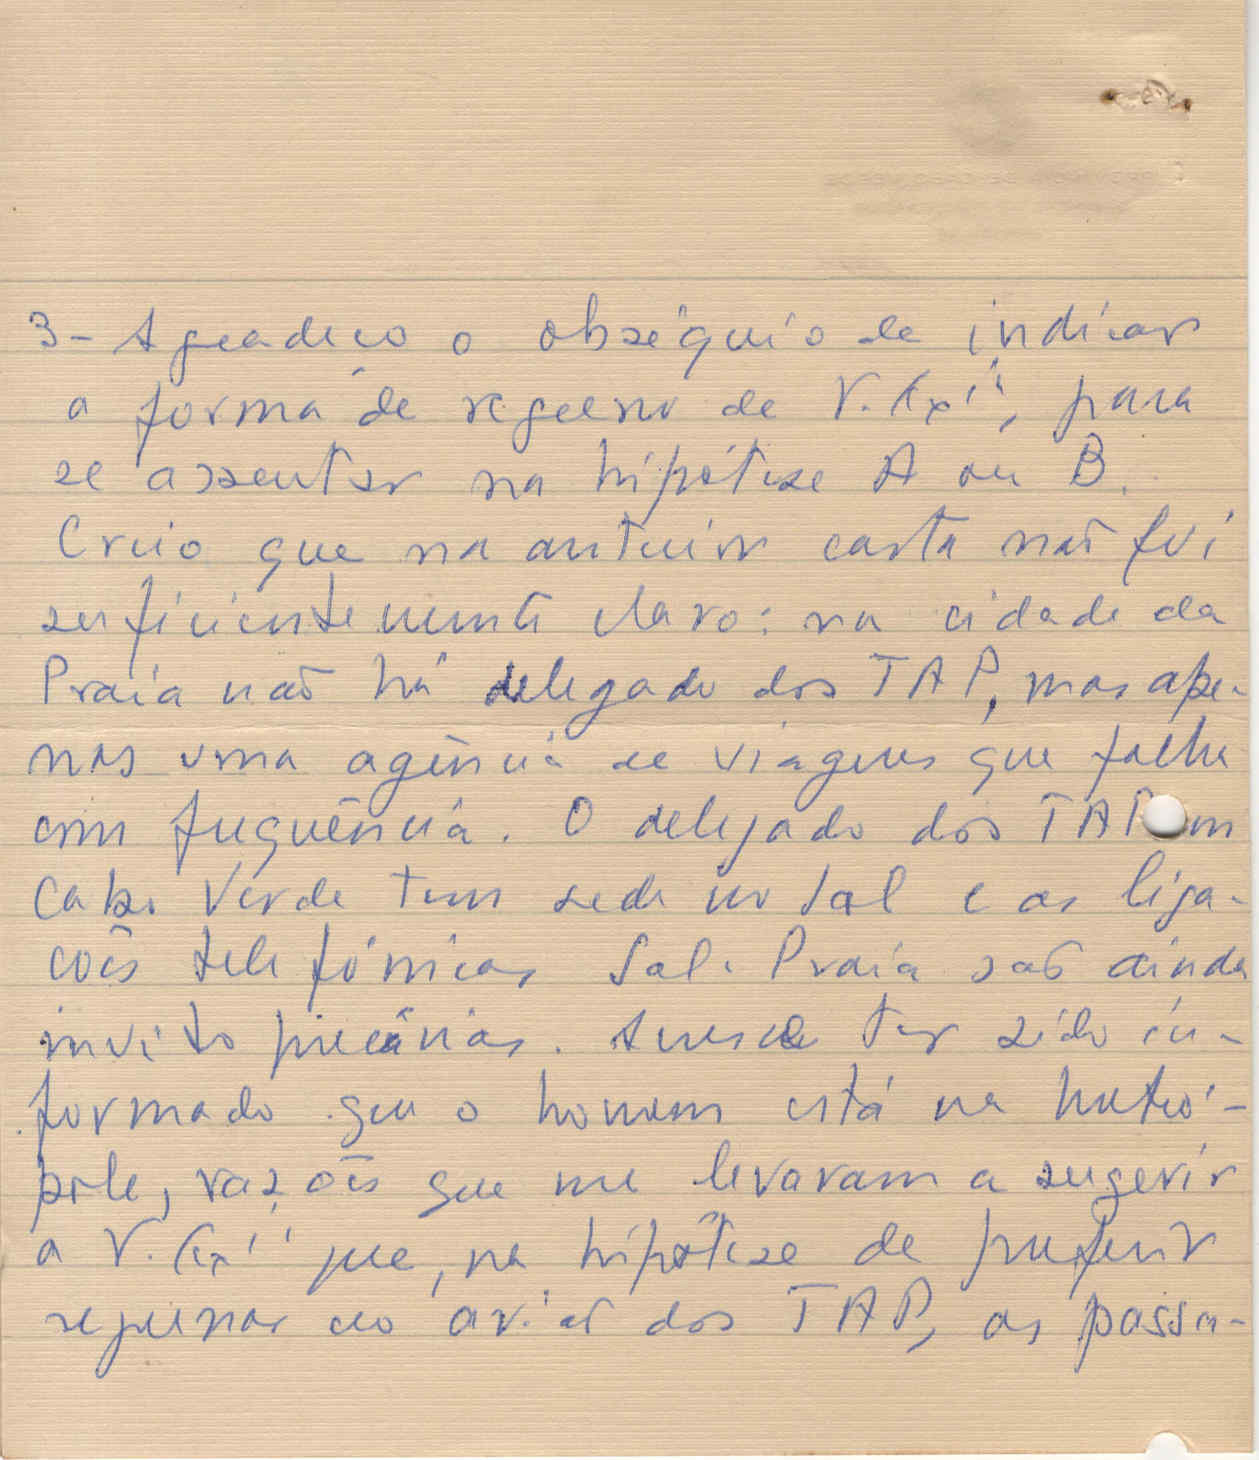 3- Agradeço o obséquio de indicar
a forma de regresso de V. Exª, para
se assentar na hipótese A ou B.
Creio que na anterior carta não fui
suficientemente claro: na cidade da
Praia não há delegado dos TAP, mas ape-
nas uma agência de viagens que falha
com frequência. O delegado dos TAP em
Cabo Verde tem sede no Sal e as liga-
ções telefónicas Sal-Praia são ainda
muito precárias. Acresce ter sido in-
formado que o homem está na metró-
pole, razões que me levaram a sugerir
a V. Exª que, na hipótese de preferir
regressar no avião dos TAP, as passa-